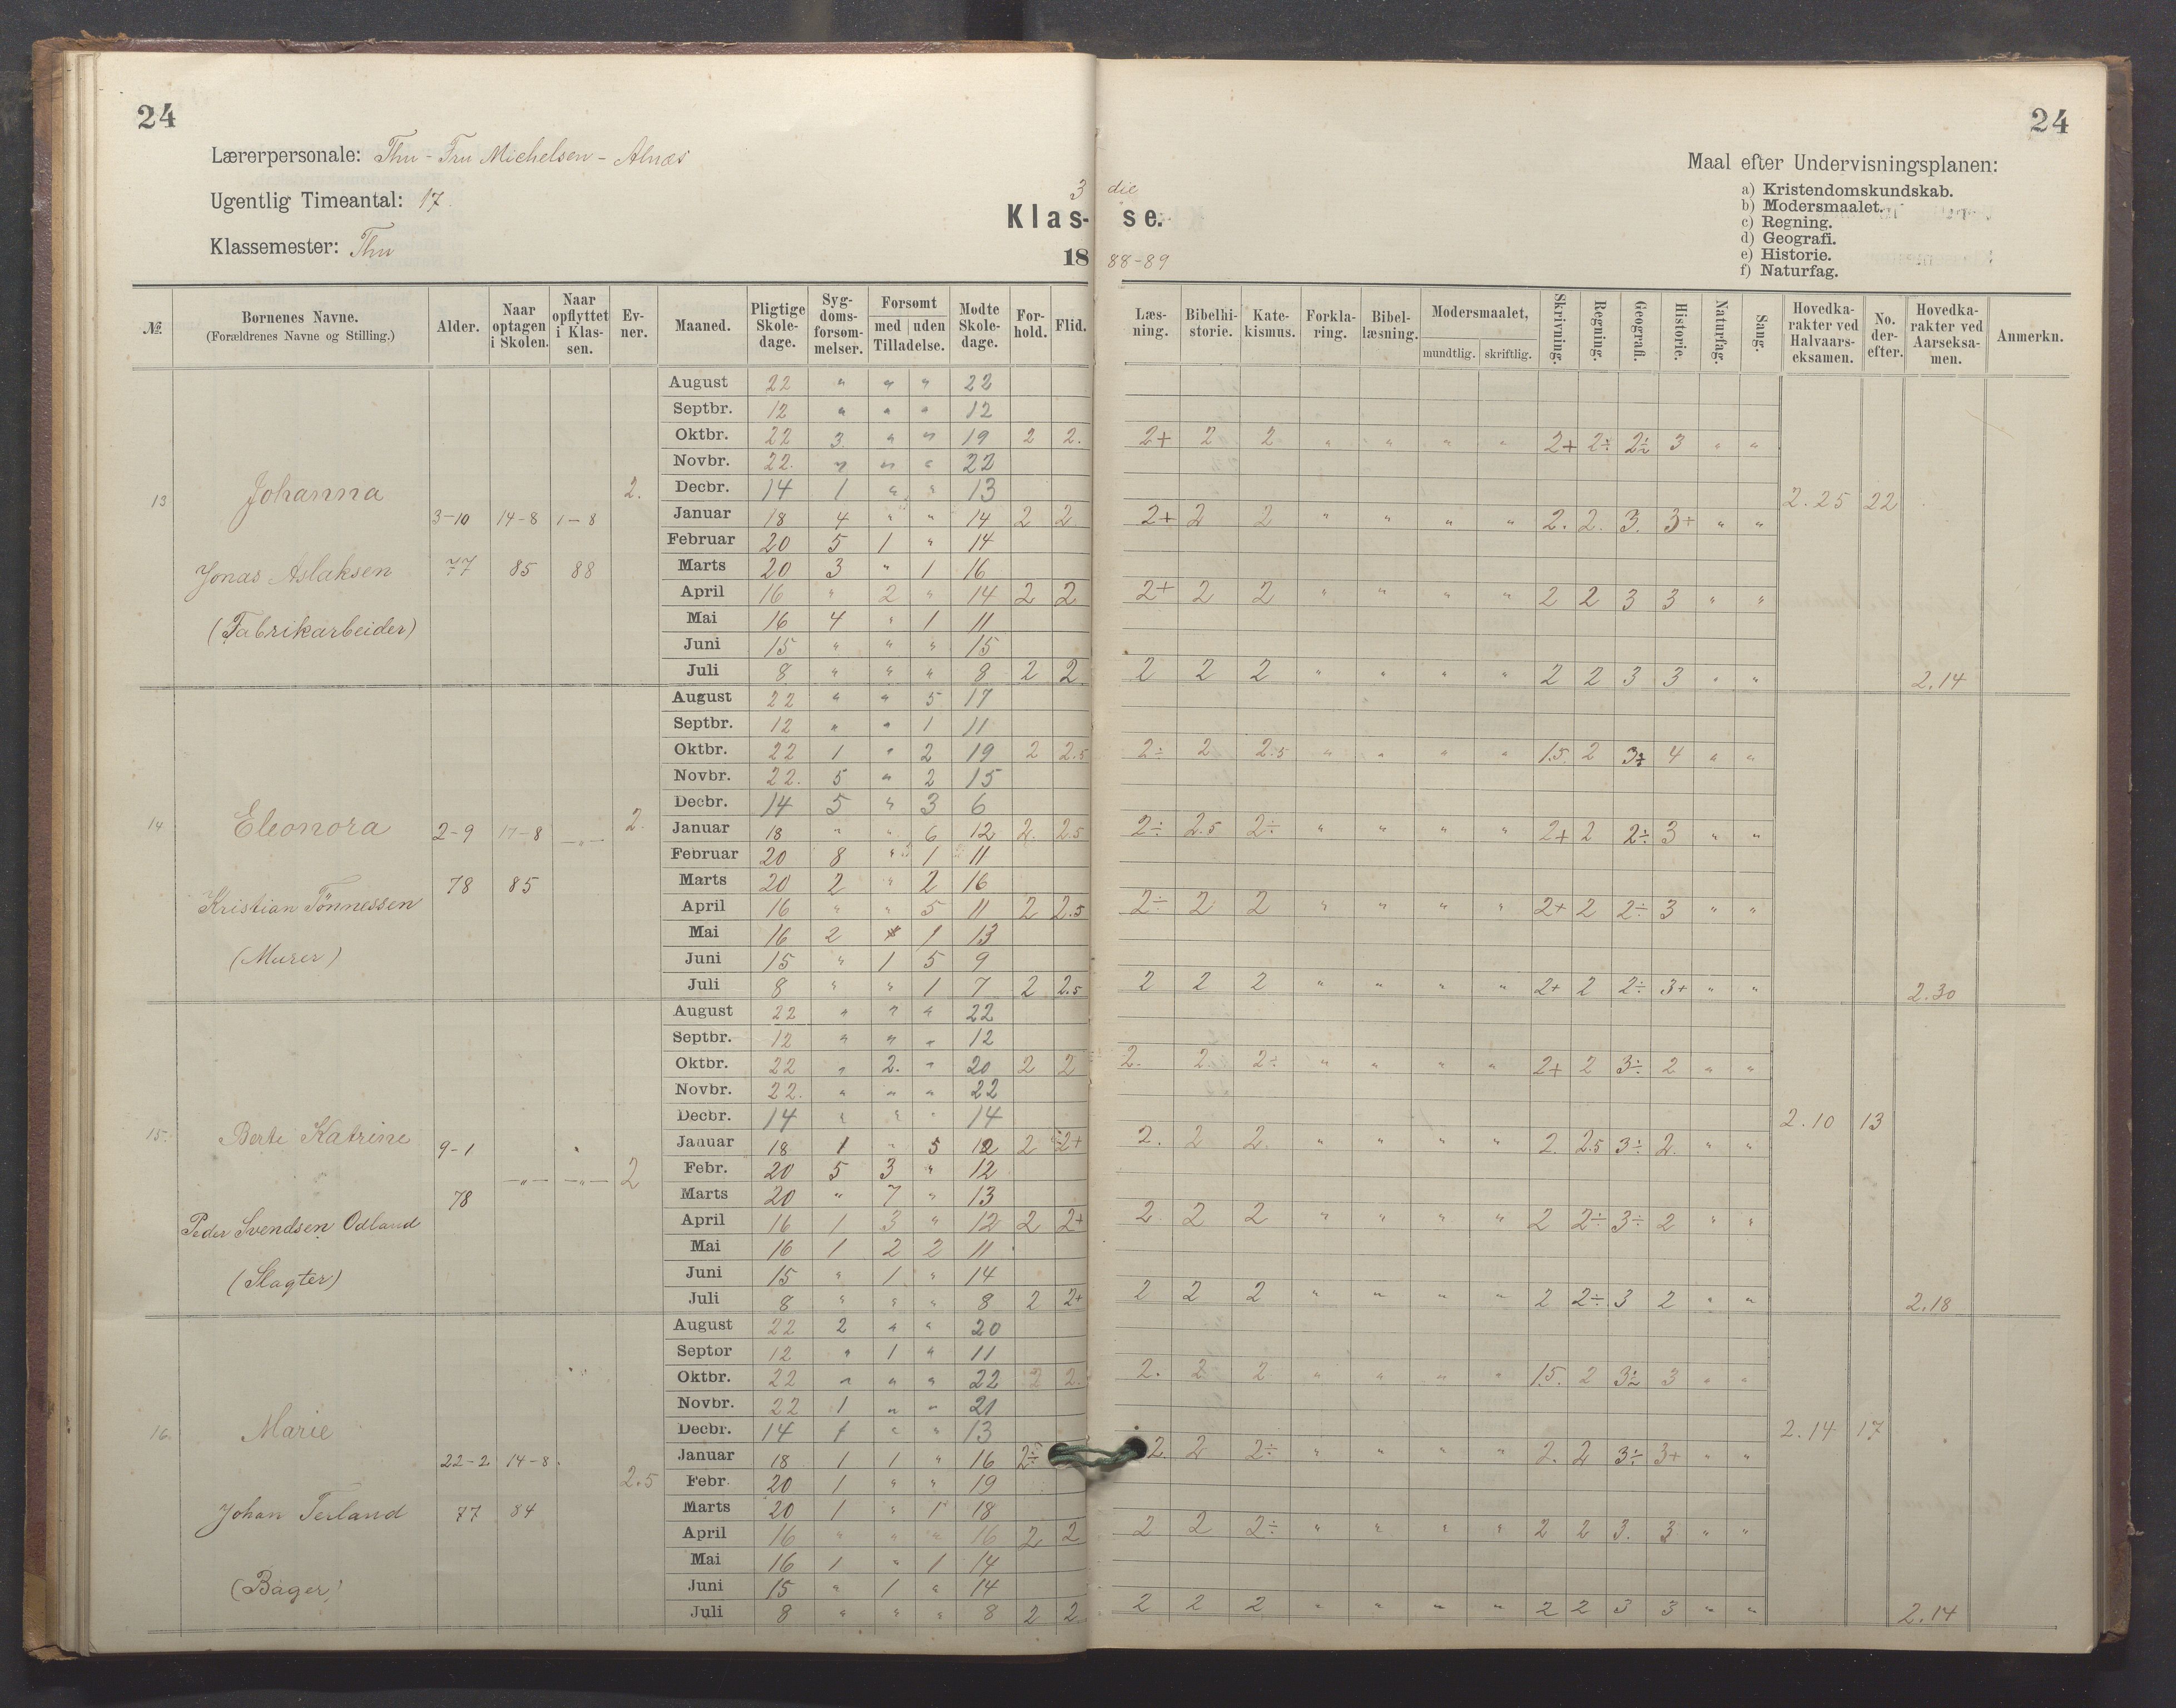 24
24
Lærerpersonale: Thu - Fru Michelsen - Alnæs
Ugentlig Timeantal: 17.
Klassemester: Thu
3 die
Klasse.
1888-89
Maal efter Undervisningsplanen:
a) Kristendomskundskab.
b) Modersmaalet.
c) Regning.
d) Geografi.
e) Historie.
f) Naturfag.
№. | Børnenes Navne. (Forældrenes Navne og Stilling.) | Alder. | Naar optagen i Skolen. | Naar opflyttet i Klassen. | Evner. | Maaned. | Pligtige Skoledage. | Sygdomsforsømmelser. | Forsømt med uden Tilladelse. | Mødte Skoledage. | Forhold. | Flid. | Læsning. | Bibelhistorie. | Katekismus. | Forklaring. | Bibellæsning. | Modersmaalet, mundtlig. skriftlig. | Skrivning. | Regning. | Geografi. | Historie. | Naturfag. | Sang. | Hovedkarakter ved Halvaarseksamen. | No. derefter. | Hovedkarakter ved Aarseksamen. | Anmerkn.
13 Johanna
3-10 77 14-8 85 1-8 88 2.
Jonas Aslaksen
(Fabrikarbeider)
August 22 " " " 22
Septbr. 12 " " " 12
Oktbr. 22 3 " " 19 2 2. 2+ 2 2 " " " " 2+ 2÷ 2÷ 3 " "
Novbr. 22. " " " 22
Decbr. 14 1 " " 13 2.25 22
Januar 18 4 " " 14 2 2 2+ 2 2 " " " " 2. 2. 3. 3+ " "
Februar 20 5 1 " 14
Marts 20 3 " 1 16
April 16 " 2 " 14 2 2 2+ 2 2 " " " " 2 2 3 3 " "
Mai 16 4 " 1 11
Juni 15 " " " 15
Juli 8 " " " 8 2 2 2 2 2 " " " " 2 2 3 3 " " 2.14
14 Eleonora
2-9 78 17-8 85 -"- 2.
Kristian Tönnessen
(Murer)
August 22 " " 5 17
Septbr. 12 " " 1 11
Oktbr. 22 1 " 2 19 2 2.5 2÷ 2 2.5 " " " " 1.5 2 3÷ 4 " "
Novbr. 22. 5 " 2 15
Decbr. 14 5 " 3 6
Januar 18 " " 6 12 2. 2.5 2÷ 2.5 2÷ " " " " 2+ 2 2÷ 3 " "
Februar 20 8 " 1 11
Marts 20 2 " 2 16
April 16 " " 5 11 2 2.5 2÷ 2 2 " " " " 2+ 2 2÷ 3 " "
Mai 16 2 " 1 13
Juni 15 " 1 5 9
Juli 8 " " 1 7 2 2.5 2 2 2 " " " " 2+ 2 2÷ 3+ " " 2.30
15. Berte Katrine
9-1 78 -"- -"- 2
Peder Svendsen Odland
(Slagter)
August 22 " " " 22
Septbr. 12 " " " 12
Oktbr. 22 " 2. " 20 2 2 2. 2. 2÷ " " " " 2+ 2 3÷ 2 " "
Novbr. 22. " " " 22
Decbr. 14 " " " 14 2.10 13
Januar 18 1 " 5 12 2 2+ 2. 2 2. " " " " 2. 2.5 3÷ 2. " "
Febr. 20 5 3 " 12
Marts 20 " 7 " 13
April 16 1 3 " 12 2 2+ 2 2 2 " " " " 2 2÷ 3÷ 2 " "
Mai 16 1 2 2 11
Juni 15 " 1 " 14
Juli 8 " " " 8 2 2+ 2 2 2 " " " " 2 2÷ 3 2 " " 2.18
16. Marie
22-2 77 14-8 84 2.5
Johan Teiland
(Bager)
August 22 2 " " 20
Septbr 12 " 1 " 11
Oktbr. 22 " " " 22 2 2. 2. 2 2 " " " " 1.5. 2 3÷ 3 " "
Novbr. 22 1 " " 21
Decbr. 14 1 " " 13 2.14 17
Januar 18 1 1 " 16 2÷ 2. 2 2÷ " " " " 2. 2 3÷ 3+ " "
Febr. 20 1 " " 19
Marts 20 1 " 1 18
April 16 " " " 16 2 2 2 2 2÷ " " " " 2 2 3. 3 " "
Mai 16 1 " 1 14
Juni 15 " 1 " 14
Juli 8 " " " 8 2 2 2 2 2 " " " " 2 2 3 3 " " 2.14